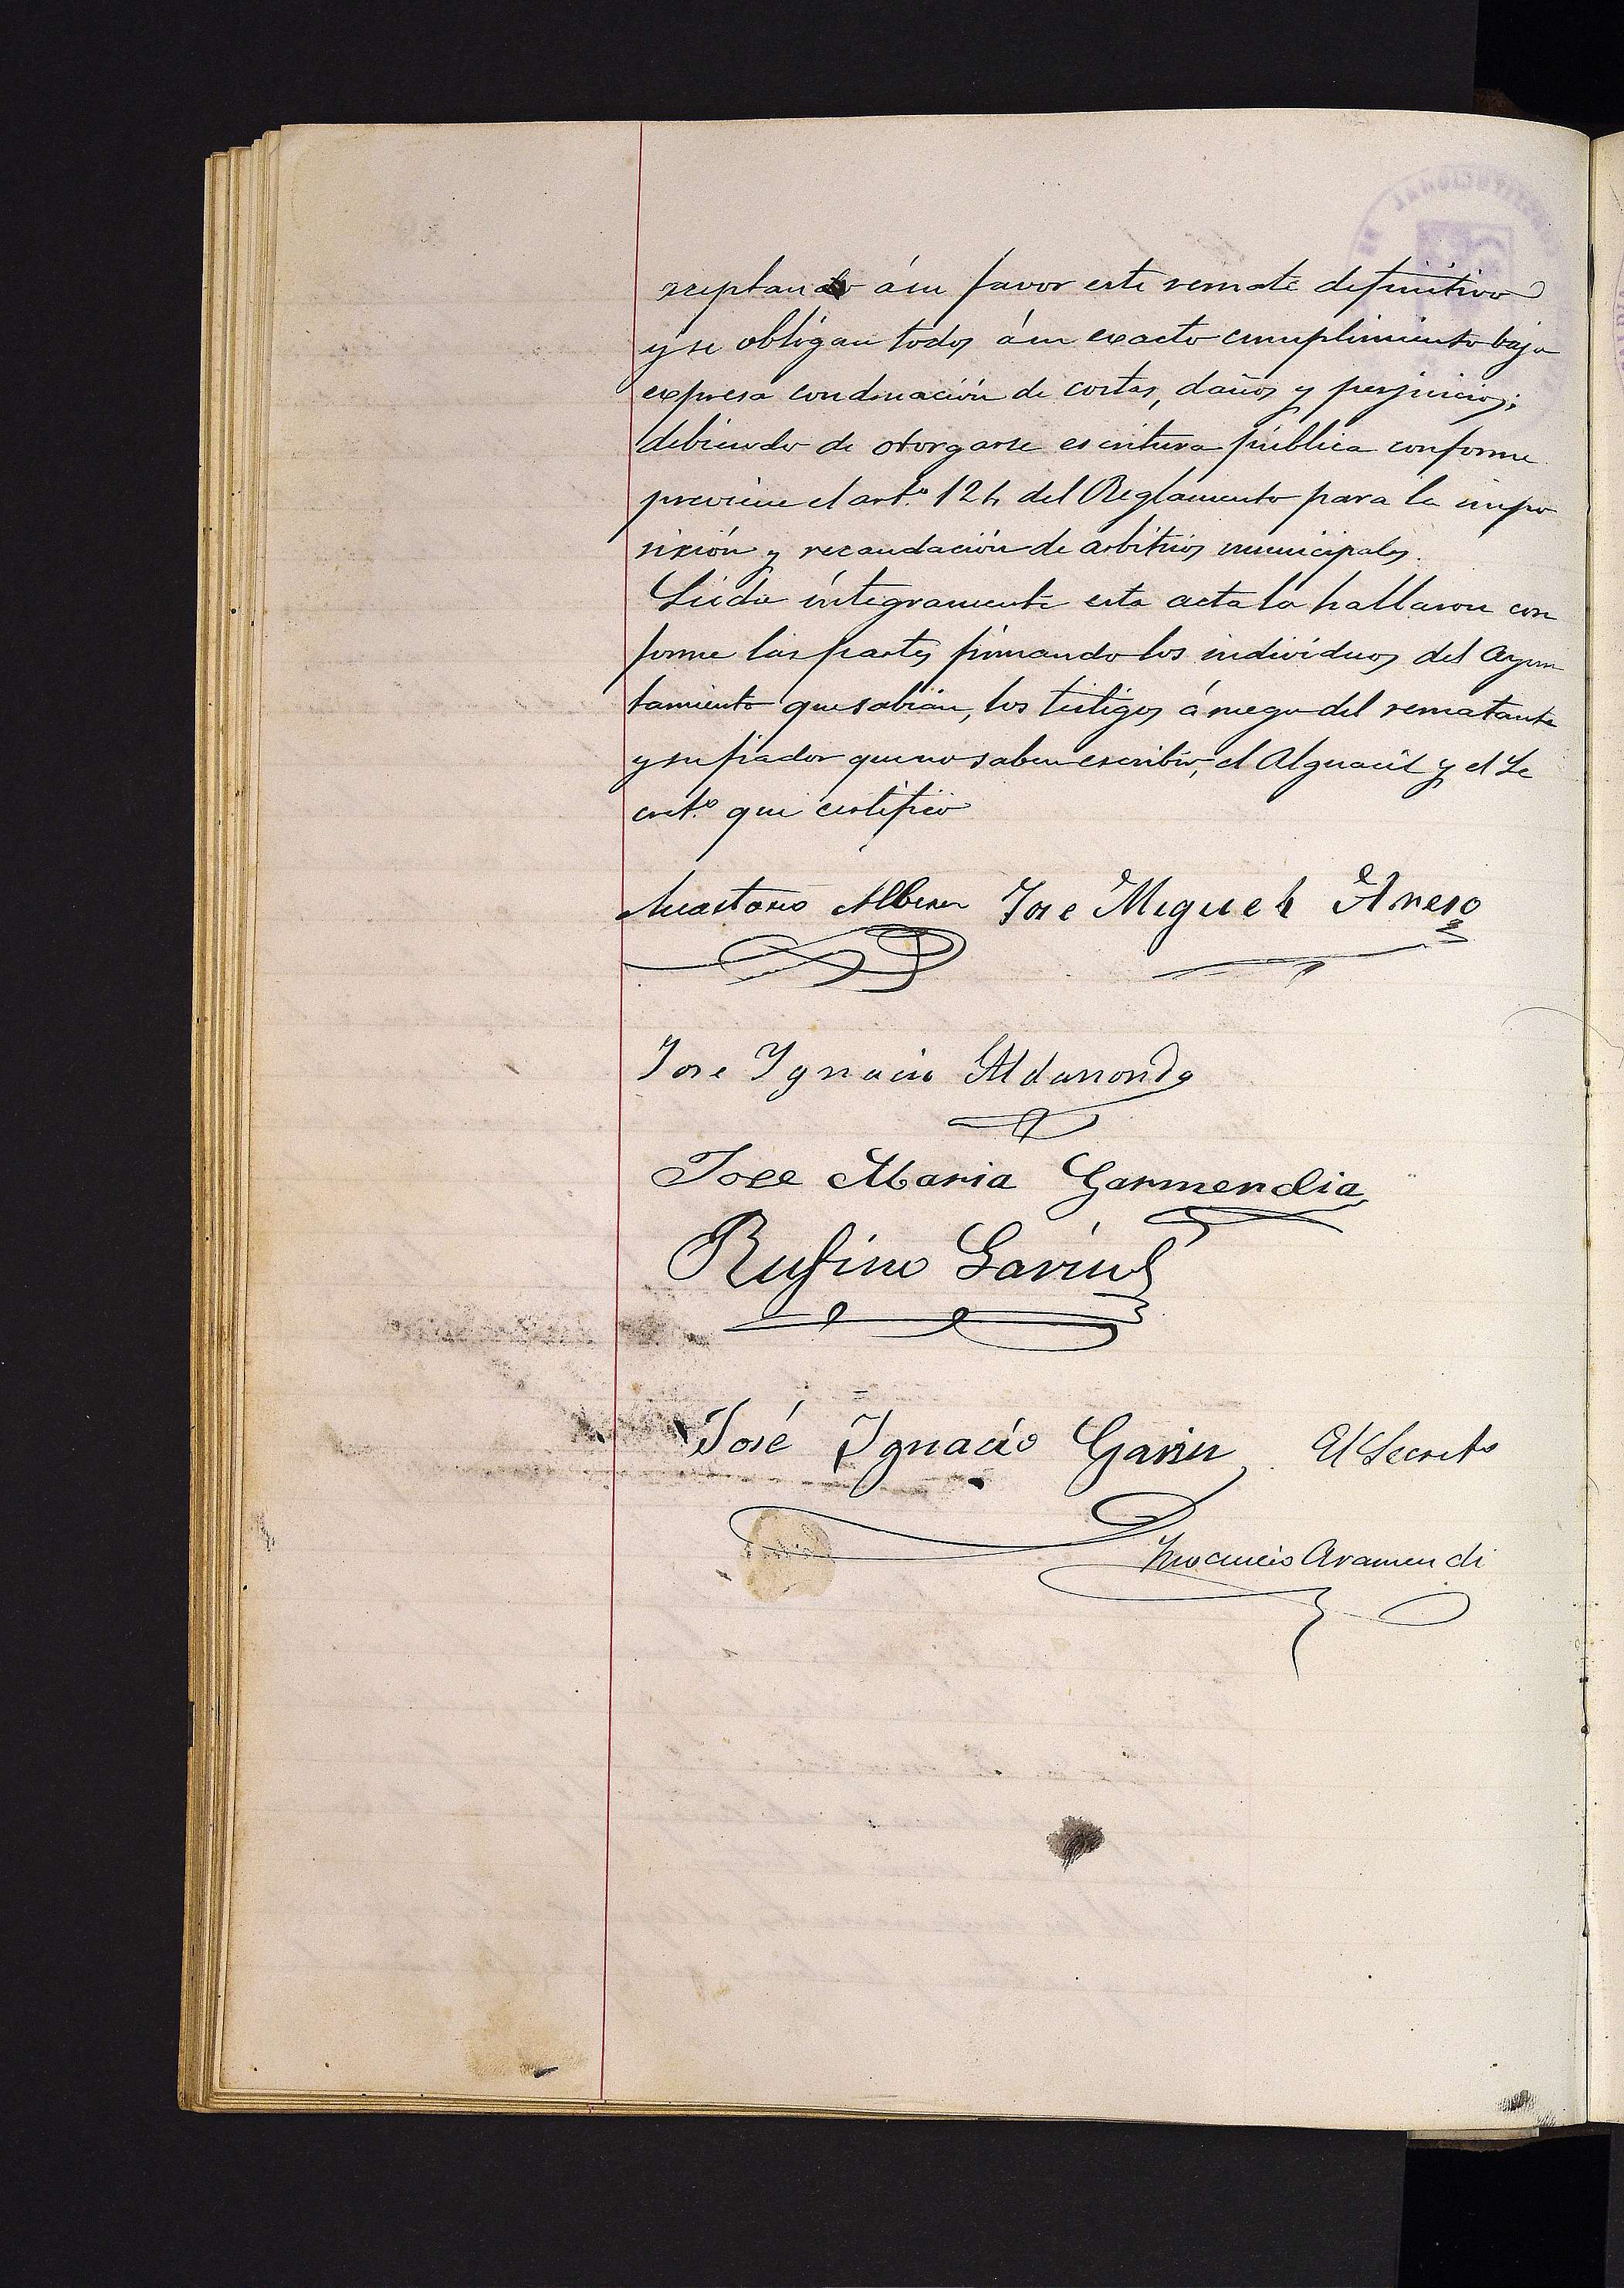 aceptando á su favor este remate definitivo
y se obligan todos á su exacto cumplimiento bajo
expresa condenación de costas, daños y perjuicios;
debiendo de otorgarse escritura pública conforme
previene el art.º 124 del Reglamento para la impo
sición y recaudación de arbitrios municipales.
Leida íntegramente esta acta la hallaron con
forme las partes firmando los individuos del Ayun
tamiento que sabian, los testigos á ruego del rematante
y su fiador que no saben escribir, el Alguacil y el Se
cret.º que certifico
Jose Miguel Areso
Jose Ygnacio Aldanondo
Jose Maria Garmendia
Rufino Garin
José Ygnacio Garin El Secret.º
Ynocencio Aramendi